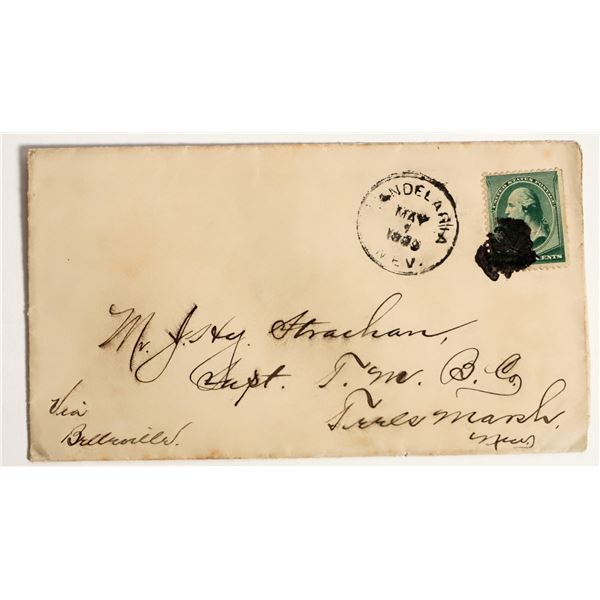 CANDELARIA
MAY
7
NEV.
UNITED STATES POSTAGE
CENTS
Mr. J. Hy. Strachan,
Supt. T. M. B. Co
Teels Marsh.
Nev.
Via
Belleville.